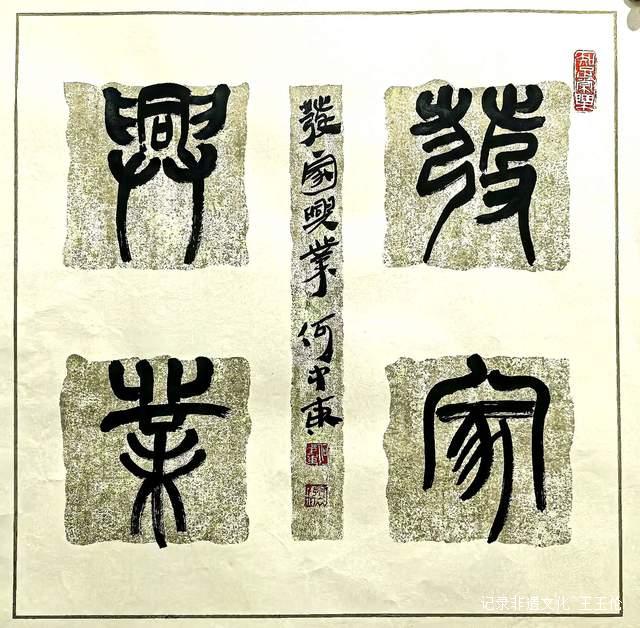 發家
興業
發家興業 何中東
记录非遗文化~王玉伦